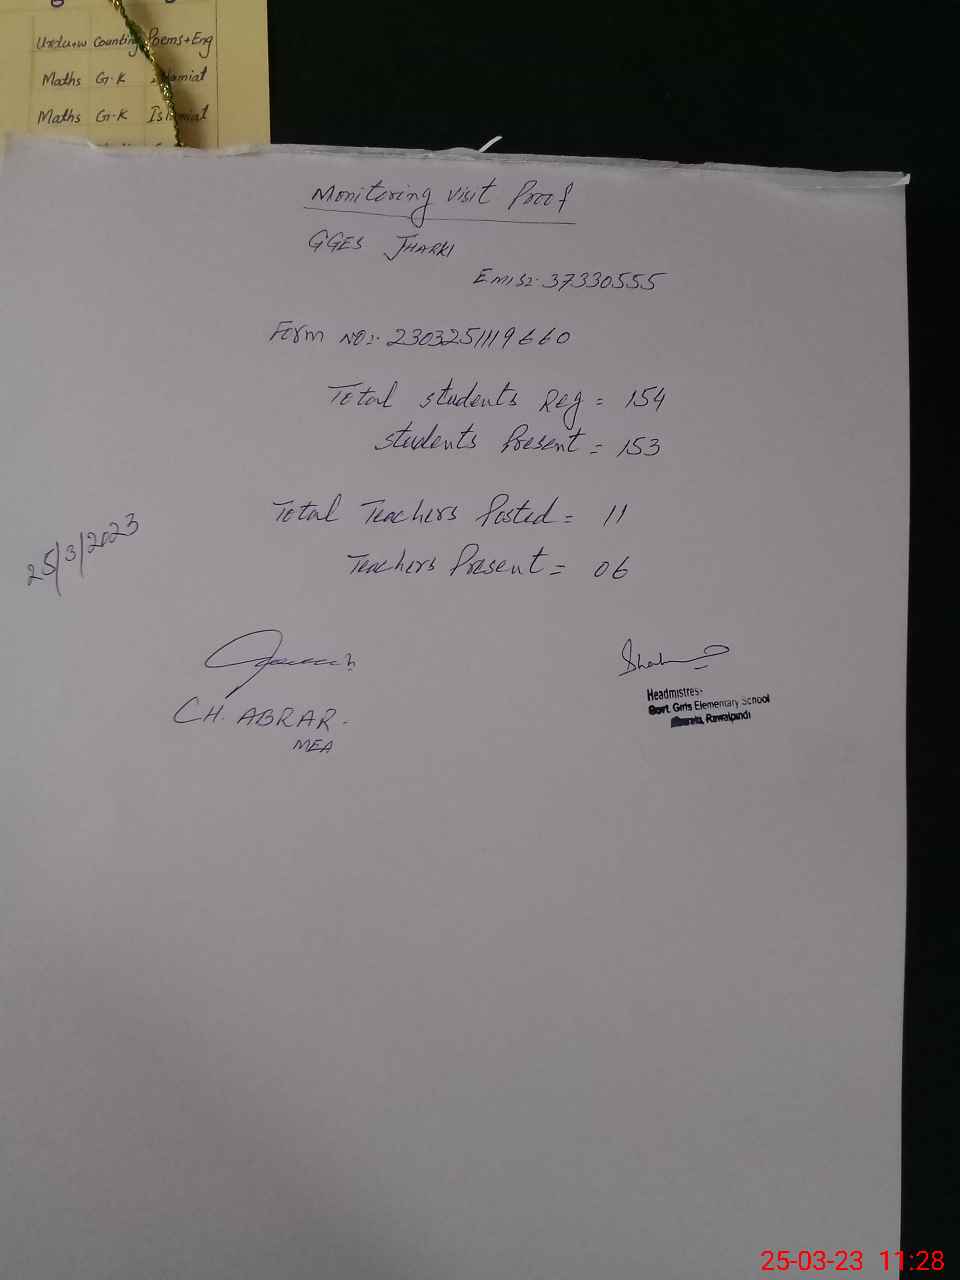 Urdu+w Counting Poems+Eng
Maths G.K
Maths G.K Islamiat
Monitoring Visit Proof
GGES JHARKI
EMIS:- 37330555
Form NO:- 2303251119660
Total students Reg = 154
students Present = 153
Total Teachers Posted = 11
Teachers Present = 06
25/3/2023
CH. ABRAR.
MEA
Headmistres-
Govt. Girls Elementary School
Rawalpindi
25-03-23 11:28